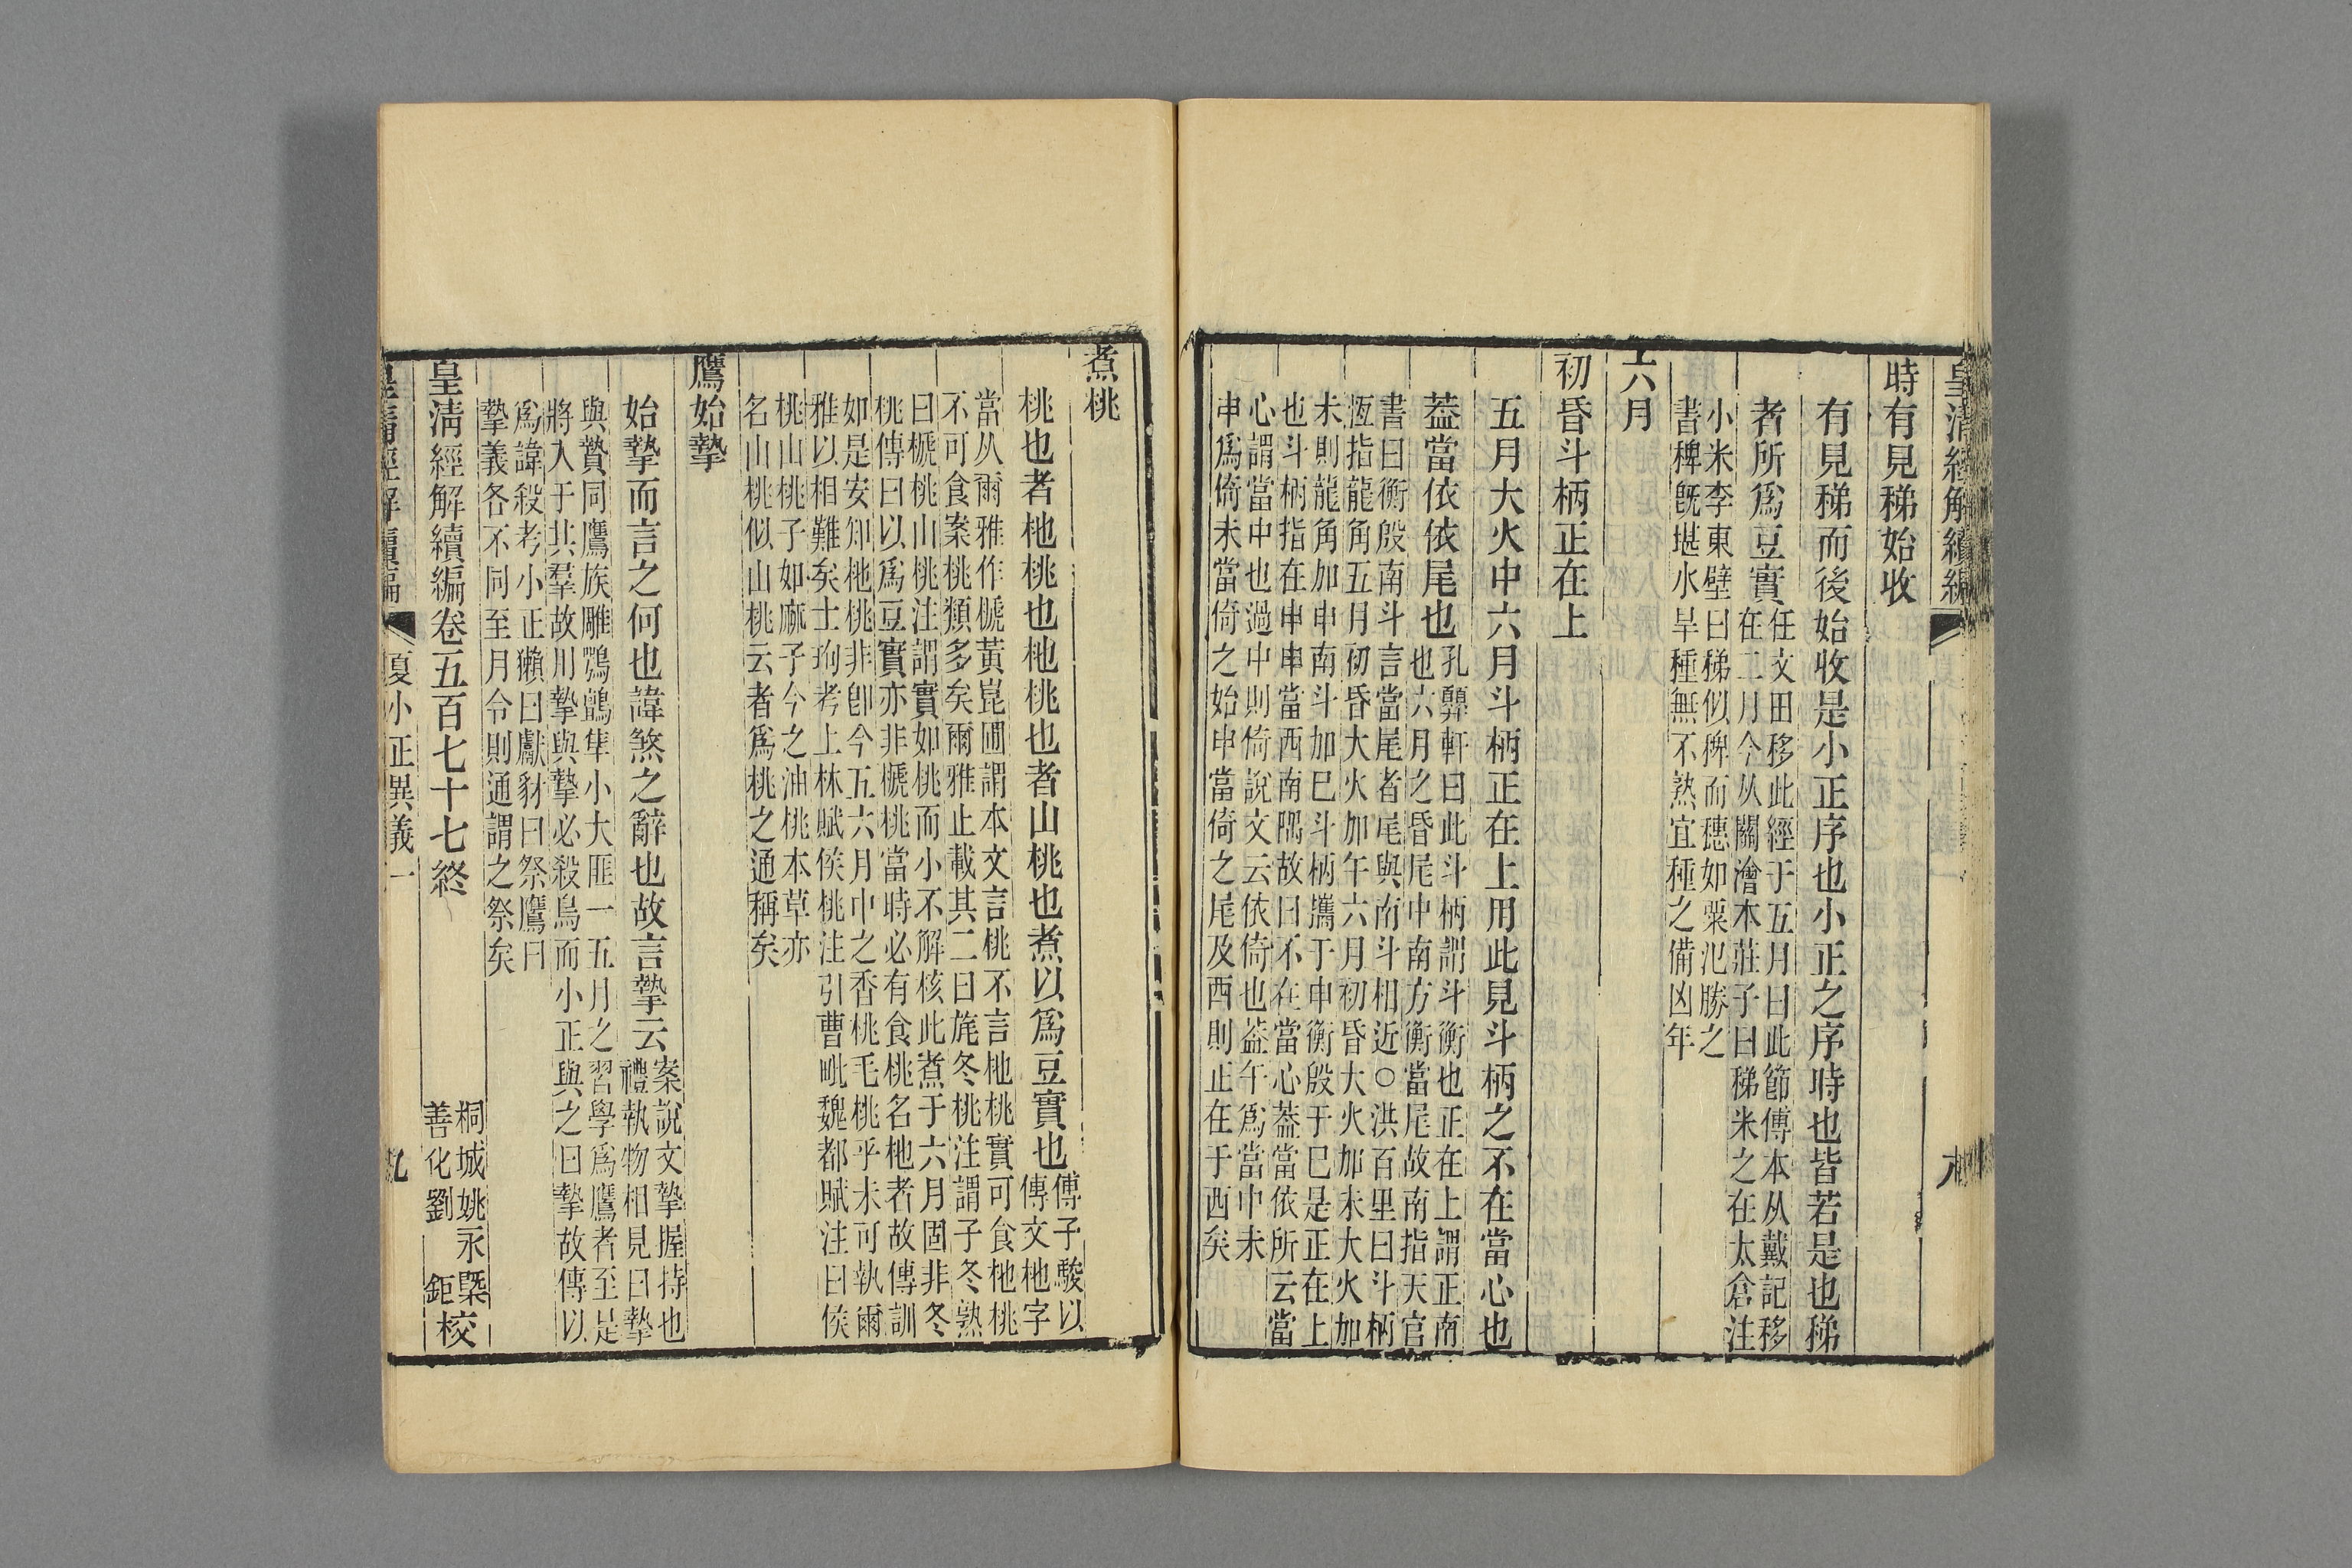 皇清經解續編
時有見稊始收
有見稊而後始收是小正序也小正之序時也皆若是也稊
者所爲豆實
任文田移此經于五月曰此節傅本从戴記移
在二月今从關澮本莊子曰稊米之在太倉注
小米李東壁曰稊似稗而穗如粟氾勝之
書稗旣堪水旱種無不熟宜種之備凶年
六月
初昏斗柄正在上
五月大火中六月斗柄正在上用此見斗柄之不在當心也
葢當依依尾也
孔㢲軒曰此斗柄謂斗衡也正在上謂正南
也六月之昏尾中南方衡當尾故南指天官
書曰衡殷南斗言當尾者尾與南斗相近○洪百里曰斗柄
恆指龍角五月初昏大火加午六月初昏大火加未大火加
未則龍角加申南斗加巳斗柄攜于申衡殷于巳是正在上
也斗柄指在申申當西南隅故曰不在當心葢當依所云當
心謂當中也過中則倚說文云依倚也葢午爲當中未
申爲倚未當倚之始申當倚之尾及酉則正在于西矣
煮桃
桃也者杝桃也杝桃也者山桃也煮以爲豆實也
傅子駿以
傳文杝字
當从爾雅作榹黃崑圃謂本文言桃不言杝桃實可食杝桃
不可食案桃類多矣爾雅止載其二曰旄冬桃注謂子冬熟
曰榹桃山桃注謂實如桃而小不解核此煮于六月固非冬
桃傳曰以爲豆實亦非榹桃當時必有食桃名杝者故傳訓
如是安知杝桃非卽今五六月中之香桃毛桃乎未可執爾
雅以相難矣士珣考上林賦侯桃注引曹毗魏都賦注曰侯
桃山桃子如麻子今之油桃本草亦
名山桃似山桃云者爲桃之通稱矣
鷹始摯
始摯而言之何也諱煞之辭也故言摯云
案說文摯握持也
禮執物相見曰摯
與贄同鷹族雕鶚鷂隼小大匪一五月之習學爲鷹者至是
將入于其羣故用摯與摯必殺鳥而小正與之曰摯故傳以
爲諱殺考小正獺曰獻豺曰祭鷹曰
摯義各不同至月令則通謂之祭矣
皇清經解續編卷五百七十七終
桐城姚永槩
善化劉 鉅校
皇清經解續編 夏小正異義一 九